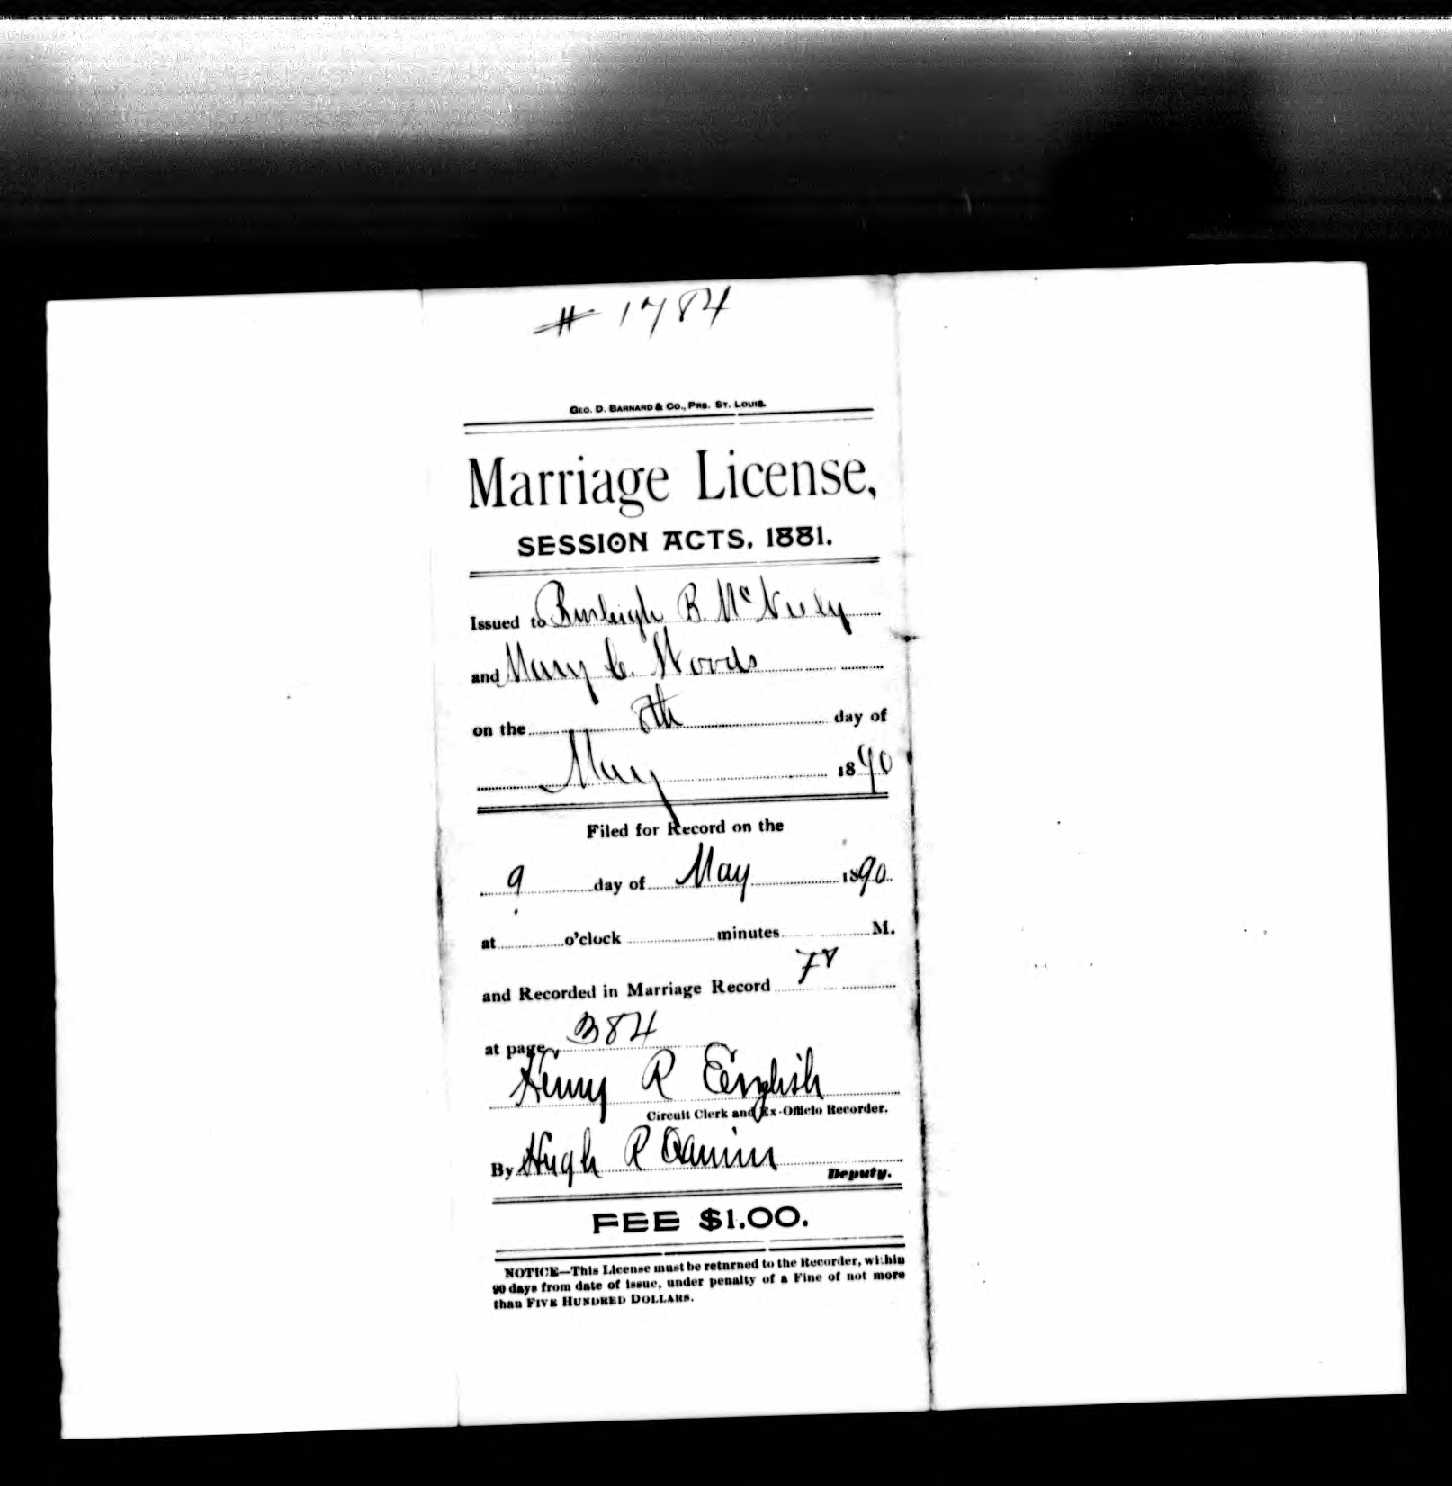 # 1784
GEO. D. BARNARD & CO., PRS. ST. LOUIS.
Marriage License,
SESSION ACTS, 1881.
Issued to Burleigh B. McNeely
and Mary C. Words
on the 8th day of
May 1890
Filed for Record on the
9 day of May 1890.
at o'clock minutes M.
and Recorded in Marriage Record
at page 384
Henry R English
Circuit Clerk and Ex-Officio Recorder.
By Hugh R
Deputy.
FEE $1.00.
NOTICE—This License must be returned to the Recorder, within
90 days from date of issue, under penalty of a Fine of not more
than FIVE HUNDRED DOLLARS.